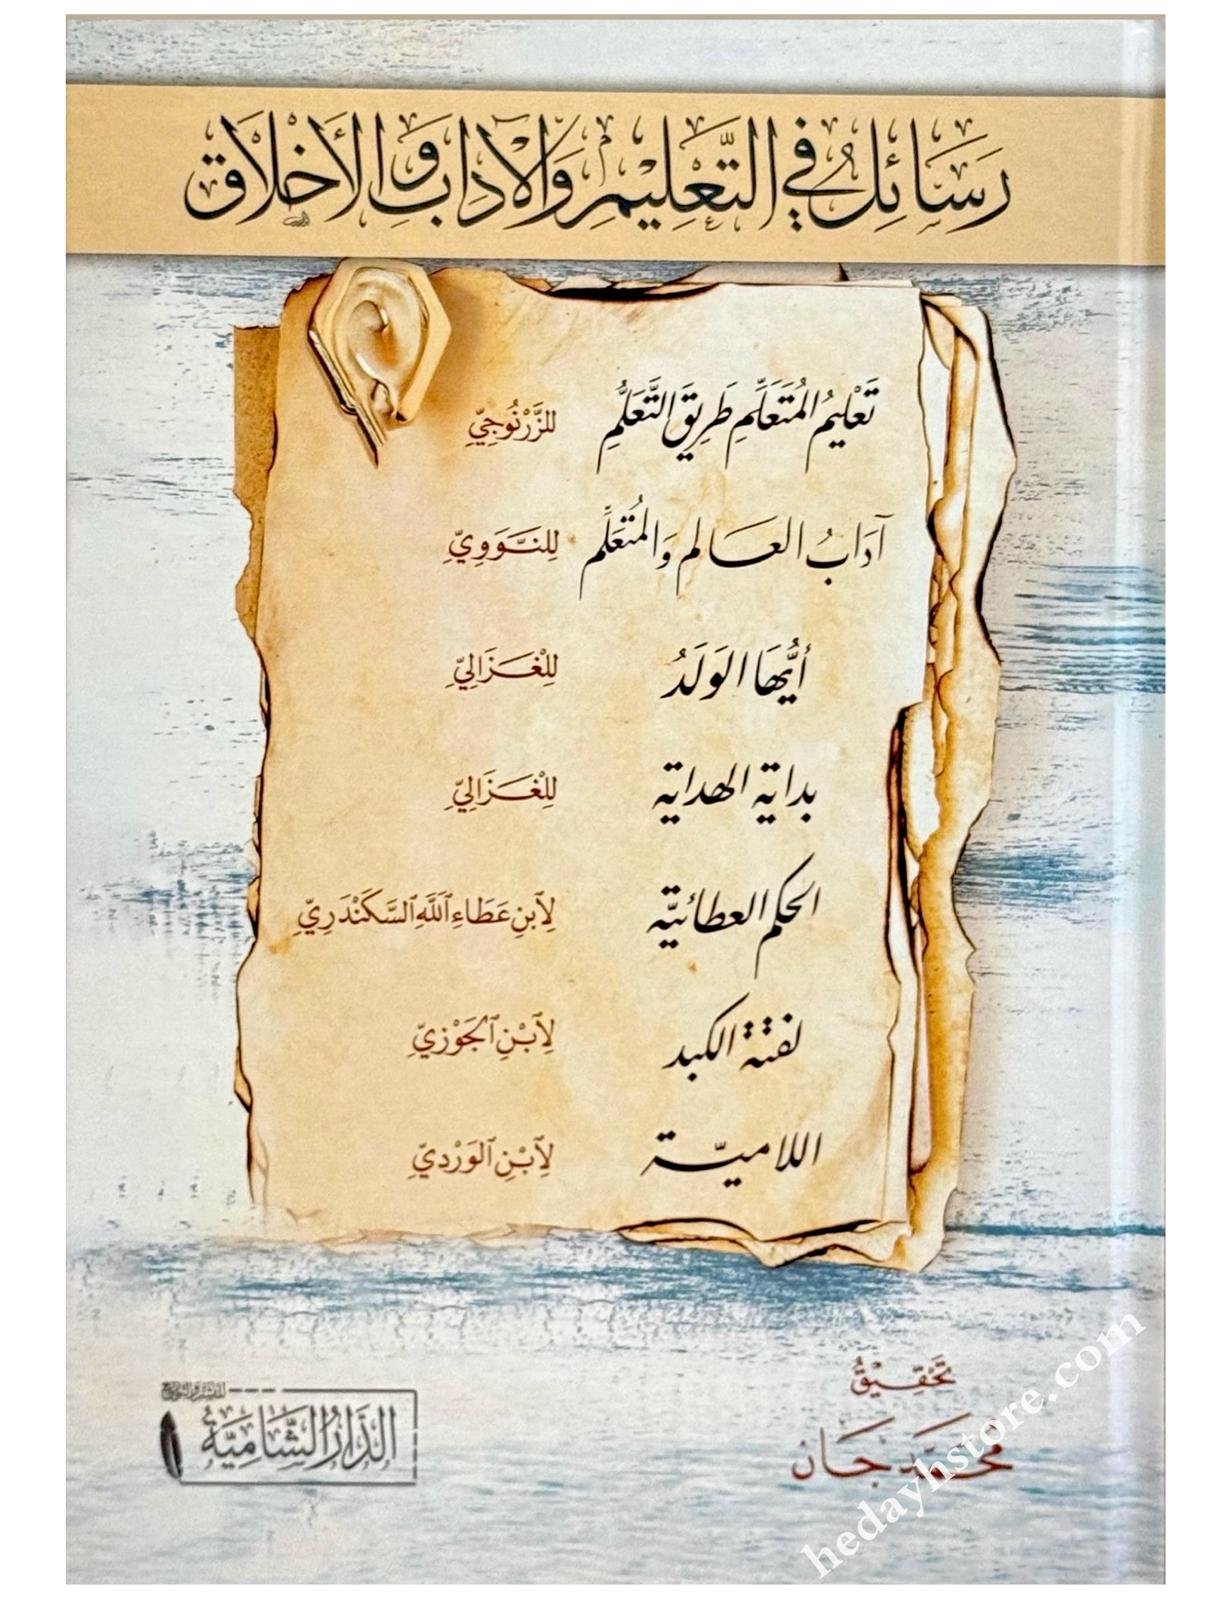 رَسَائِلُ فِي التَّعْلِيمِ وَالْآدَابِ وَالْأَخْلَاقِ
تَعْلِيمُ المُتَعَلِّمِ طَرِيقَ التَّعَلُّمِ للزَّرْنُوجِيِّ
آدَابُ العَالم وَالمُتَعَلِّم لِلنَّوَوِيِّ
أَيُّهَا الوَلَدُ لِلْغَزَالِيِّ
بداية الهداية لِلْغَزَالِيِّ
الحكم العطائيّة لِٱبنِ عَطَاءِ ٱللَّهِ ٱلسَّكَنْدَرِيِّ
لفتة الكبد لِٱبْنِ ٱلجَوْزِيِّ
اللاميّة لِٱبْنِ ٱلوَرْدِيِّ
تَحْقِيْقُ
محَمَّد جَان
للنشر والتوزيع
الدَّارُ الشَّامِيَّةُ
hedayhstore.com